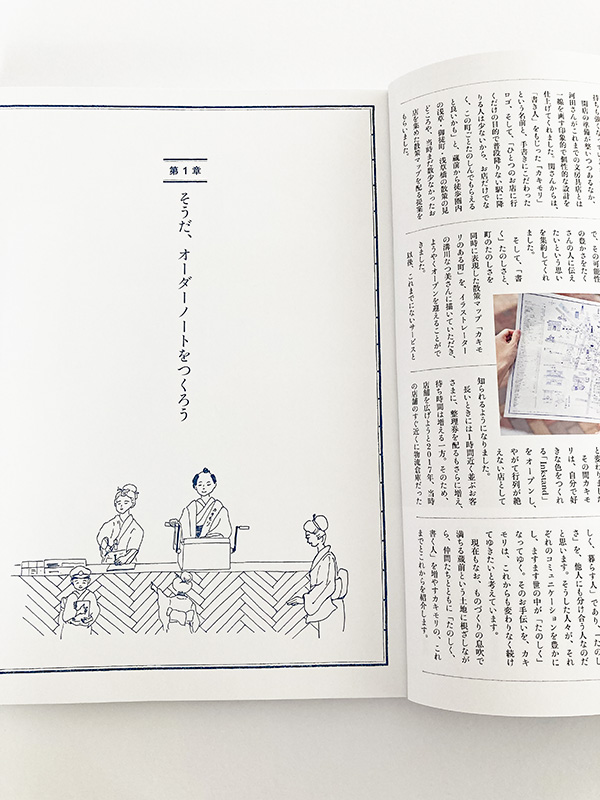 持ちも強くなって
開店の準備が整いつつあるなか、
河田さんがこれまでの文房具店とは
一線を画す印象的で個性的な設計を
仕上げてくれました。関さんからは、
「書き人」をもじった「カキモリ」
という名前と、手書きにこだわった
ロゴ、そして、「ひとつのお店に行
くだけの目的で普段降りない駅に降
りる人は少ないから、お店だけでな
く、この町ごとたのしんでもらえる
と良いかも」と、蔵前から徒歩圏内
の浅草・御徒町・浅草橋の散策の見
どころや、当時まだ数少なかったお
店を集めた散策マップを配る提案を
もらいました。
で、その可能性
の豊かさをたく
さんの人に伝え
たいという思い
を集約してくれ
ました。
そして、「書
く」たのしさと、
町のたのしさを
同時に表現した散策マップ「カキモ
リのある町」を、イラストレーター
の溝川なつ美さんに描いていただき、
ようやくオープンを迎えることがで
きました。
以後、これまでにないサービスと
と変わりました
その間カキモ
リは、自分で好
きな色をつくれ
る「Inkstand」
をオープンし、
やがて行列が絶
えない店として
知られるようになりました。
長いときには1時間近く並ぶお客
さまに、整理券を配るもさらに増え、
待ち時間は増える一方。そのため、
店舗を広げようと2017年、当時
の店舗のすぐ近くに物流倉庫だった
しく、暮らす人」であり、「たのし
さ」を、他人にも分け合う人なのだ
と思います。そうした人々が、それ
ぞれのコミュニケーションを豊かに
し、ますます世の中が「たのしく」
なってゆく。そのお手伝いを、カキ
モリは、これからも変わりなく続け
てゆきたいと考えています。
現在もなお、ものづくりの息吹で
満ちる蔵前という土地に根ざしなが
ら、仲間たちとともに「たのしく、
書く人」を増やすカキモリの、これ
までとこれからを紹介します。
第1章
そうだ、オーダーノートをつくろう